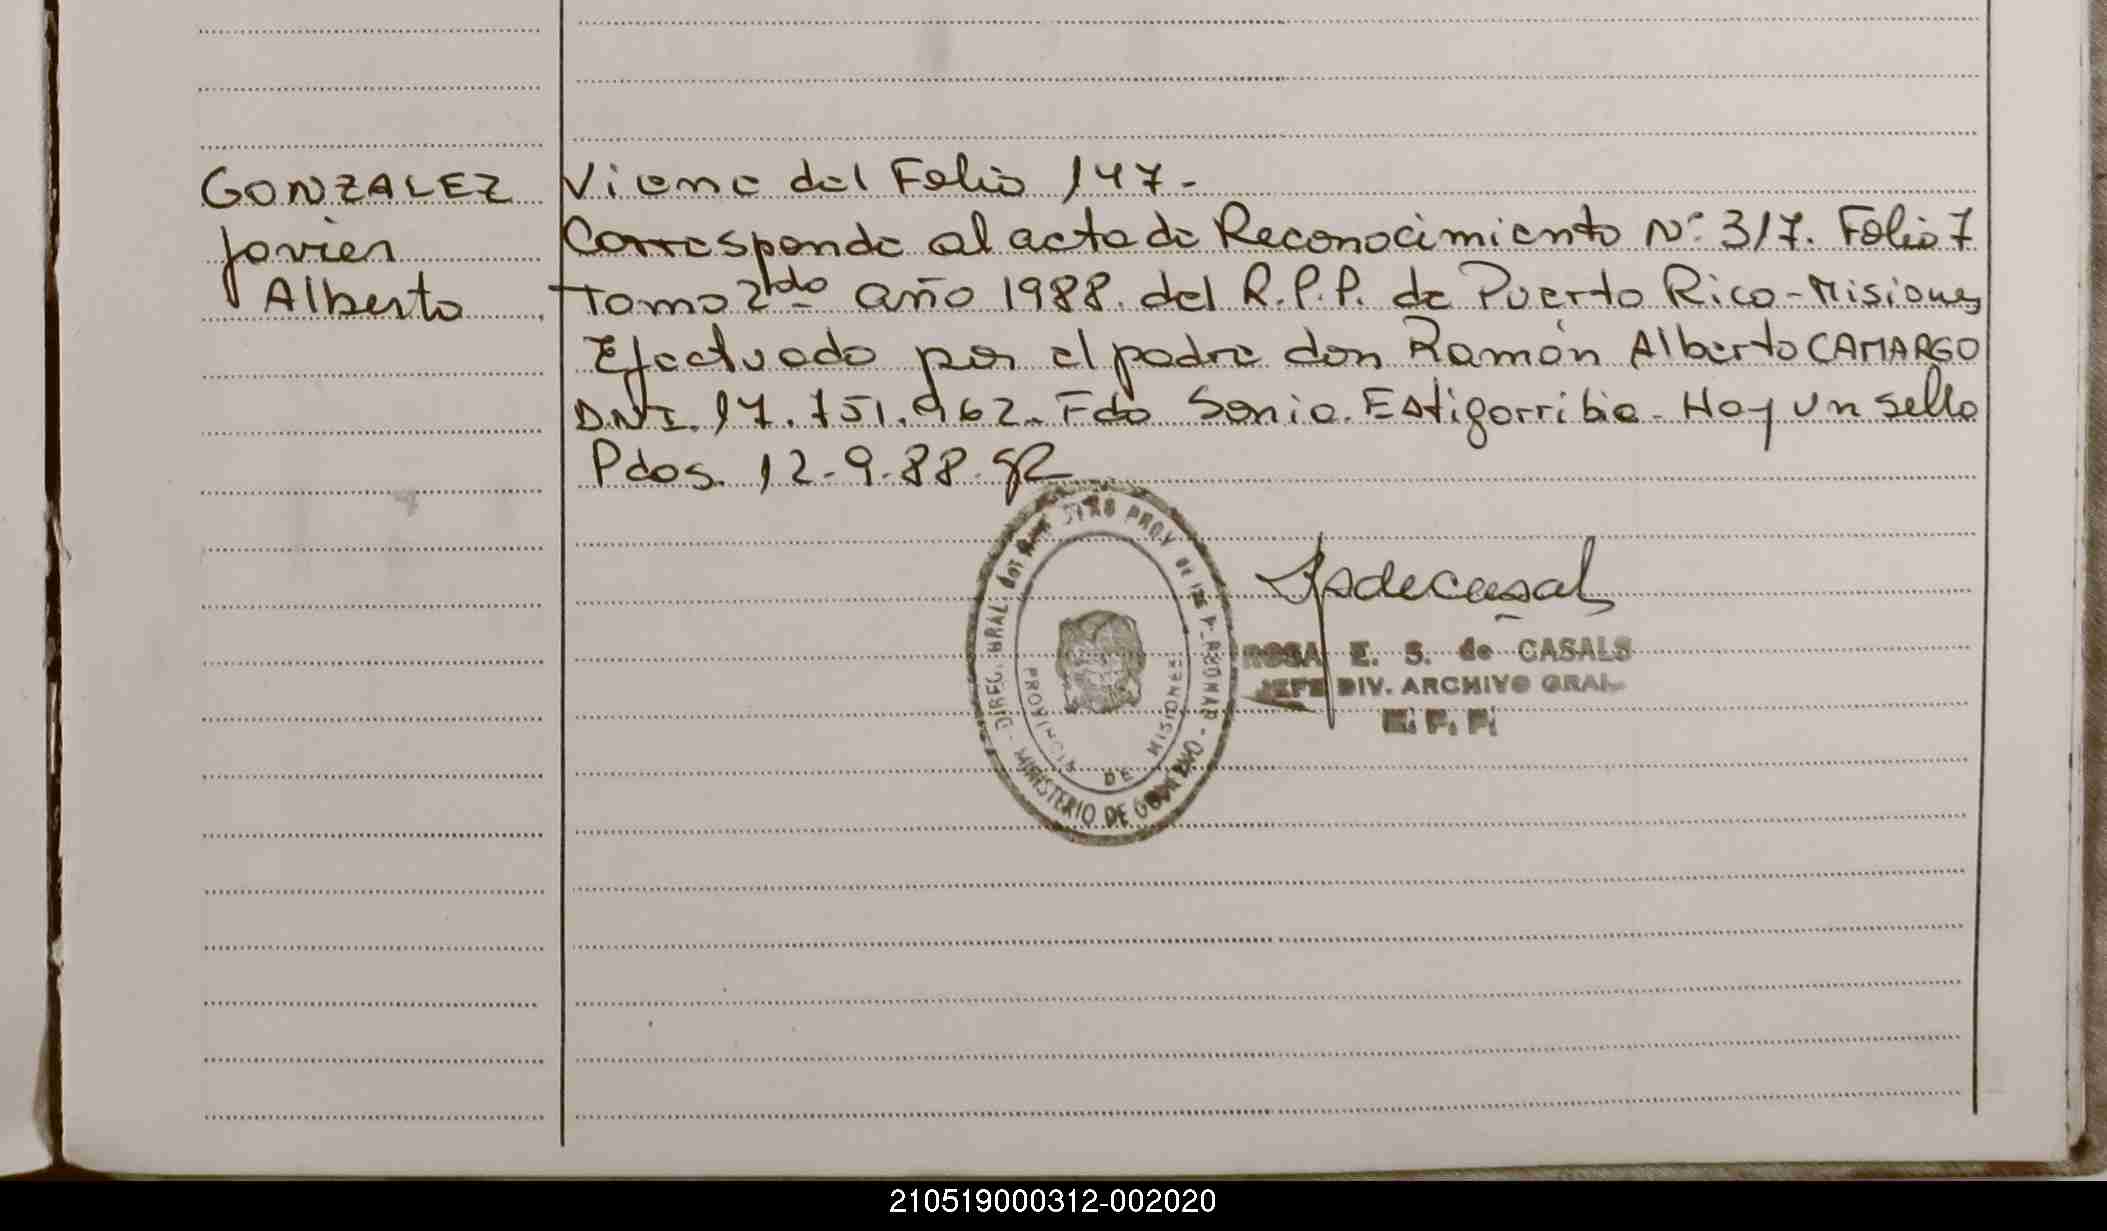 GONZALEZ
Javier
Alberto
Viene del Folio 147.-
Corresponde al acta de Reconocimiento Nº 317. Folio 7
tomo 2do año 1988. del R.P.P. de Puerto Rico-Misiones
Efectuado por el padre don Ramón Alberto CAMARGO
D.N.I. 17.751.962. Fdo Sonia Estigarribia. Hay un sello
Pdos. 12-9-88.
DIREC. GRAL. PROV. DE LAS
MINISTERIO DE GOBIERNO
PROVINCIA DE MISIONES
ROSA E. S. de CASALS
JEFE DIV. ARCHIVO GRAL.
R. P. P.
210519000312-002020